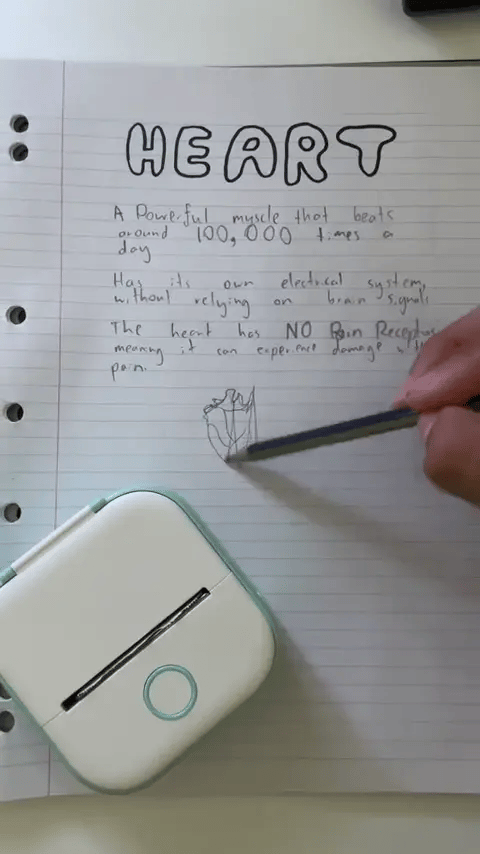 HEART
A Powerful muscle that beats
around 100,000 times a
day
Has its own electrical system,
without relying on brain signals
The heart has NO Pain
meaning it can experience damage
pain.